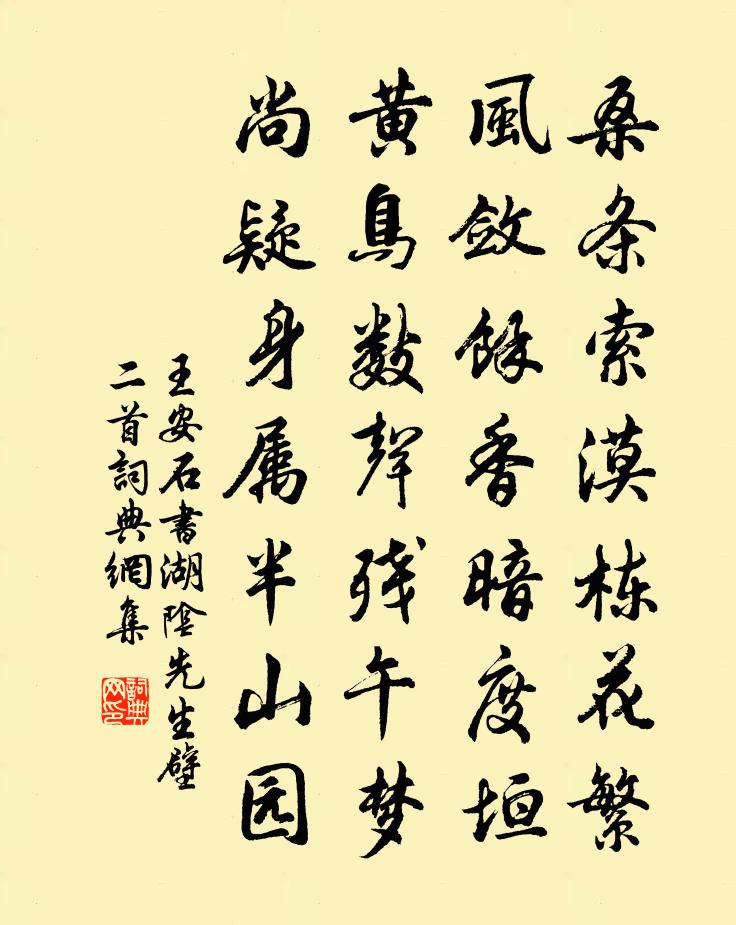 桑条索漠栋花繁
風斂餘香暗度垣
黄鳥数聲残午梦
尚疑身属半山园
王安石書湖陰先生壁
二首詞典網集
詞典
网印